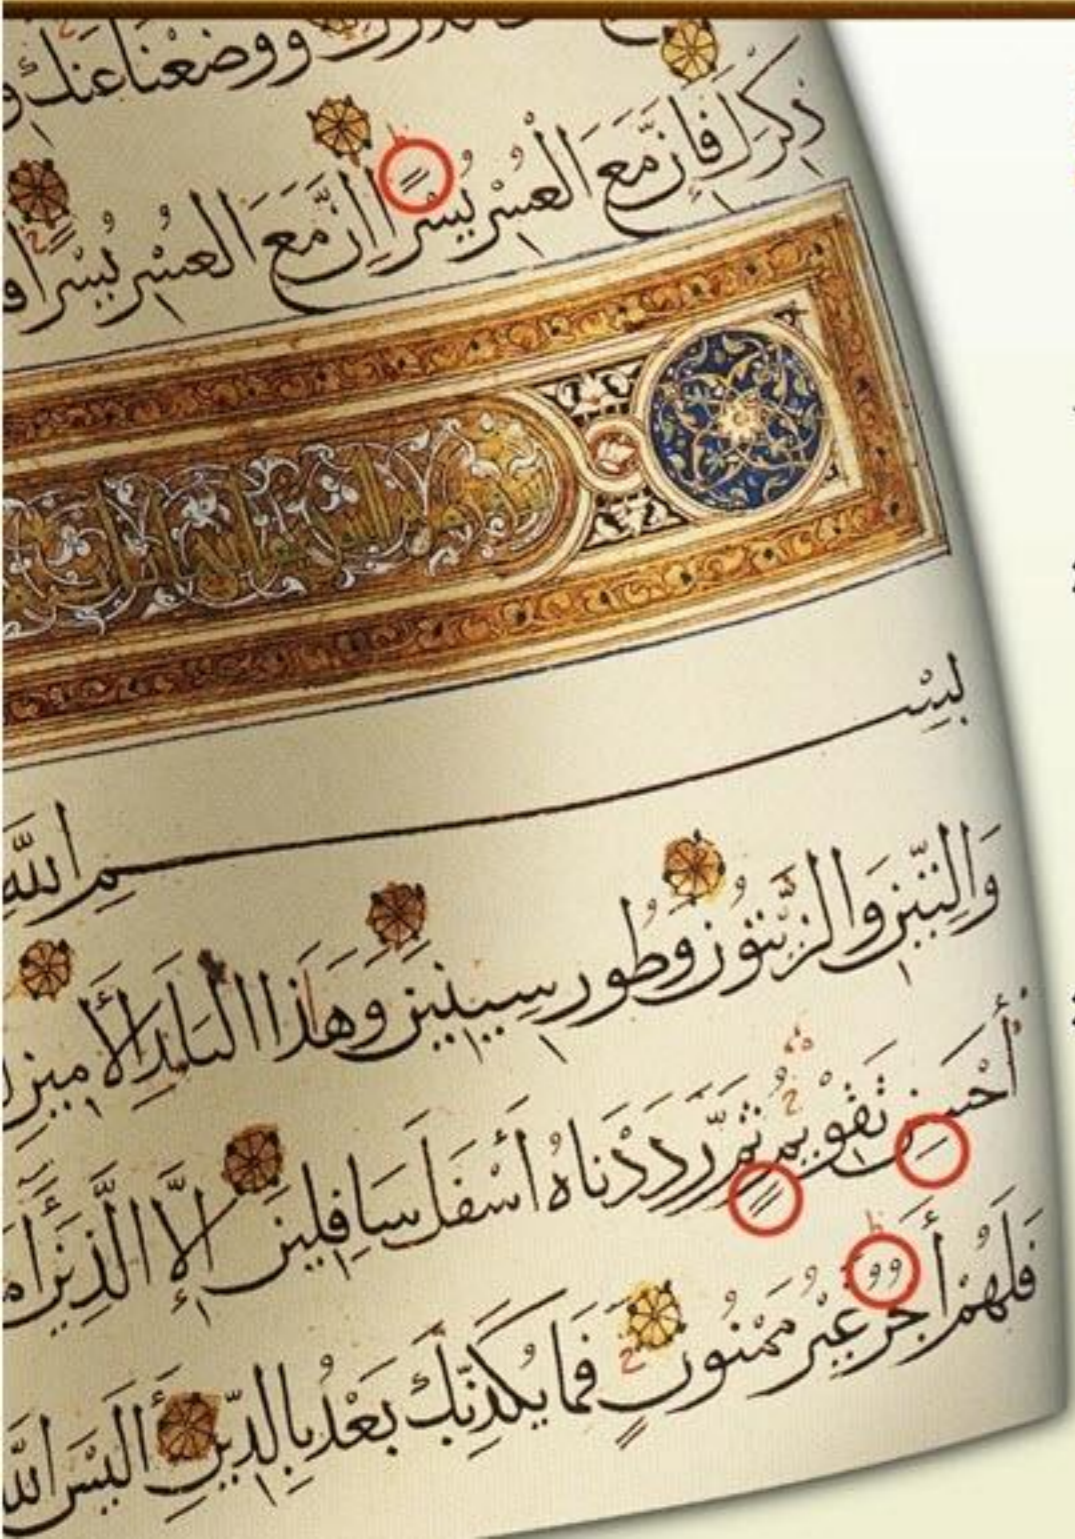 وَوَضَعْنَا عَنكَ
ذِكْرَكَ فَإِنَّ مَعَ الْعُسْرِ يُسْرًا إِنَّ مَعَ الْعُسْرِ يُسْرًا
بِسْمِ اللَّهِ
وَالتِّينِ وَالزَّيْتُونِ وَطُورِ سِينِينَ وَهَذَا الْبَلَدِ الْأَمِينِ
أَحْسَنِ تَقْوِيمٍ ثُمَّ رَدَدْنَاهُ أَسْفَلَ سَافِلِينَ إِلَّا الَّذِينَ
فَلَهُمْ أَجْرٌ غَيْرُ مَمْنُونٍ فَمَا يُكَذِّبُكَ بَعْدُ بِالدِّينِ أَلَيْسَ اللَّهُ